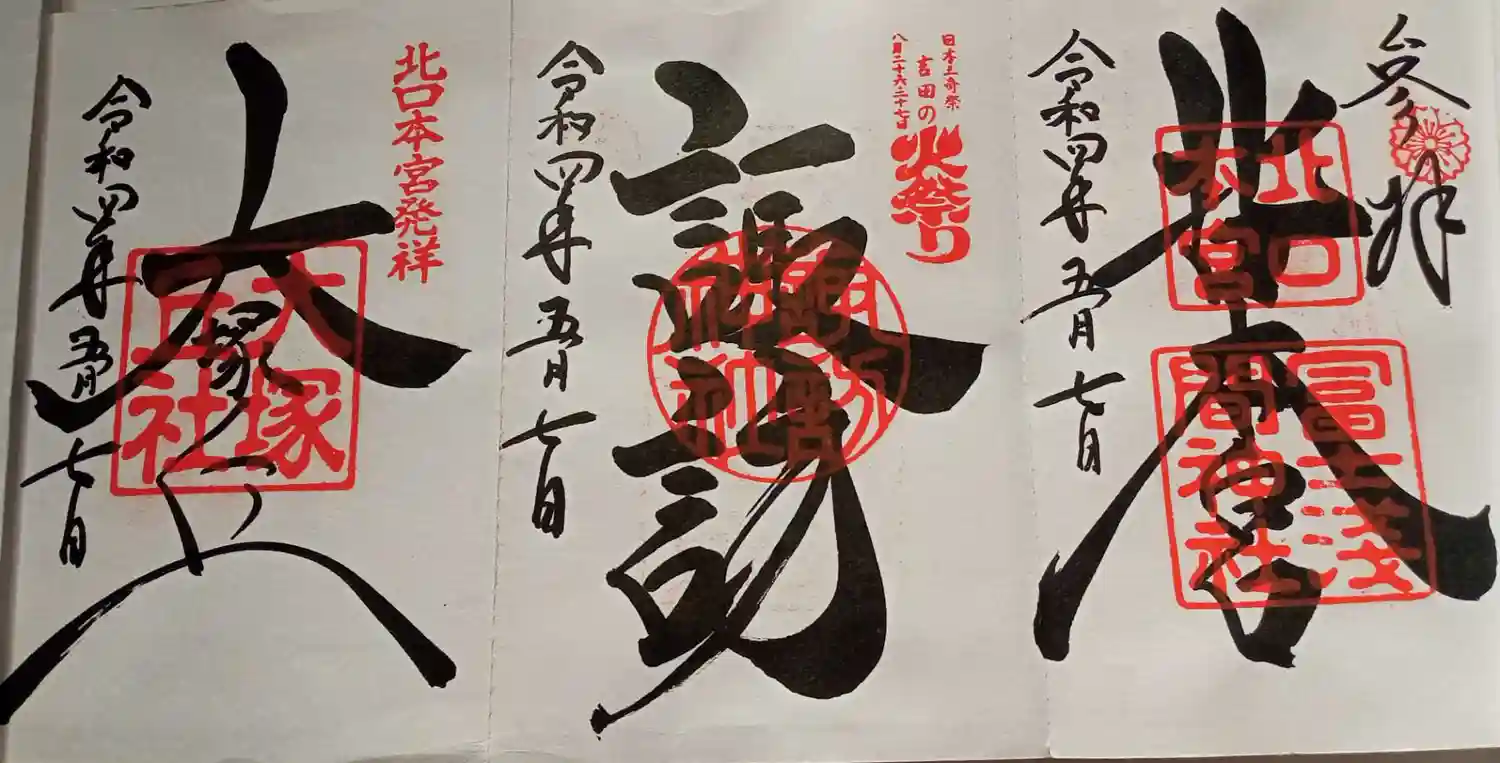 参拝
北本宮
北口
本宮
冨士浅
間神社
令和四年五月七日
日本三奇祭
吉田の火祭り
八月二十六二十七日
諏訪
諏訪
神社
令和四年五月七日
北口本宮発祥
大塚丘
大塚
丘社
令和四年五月七日